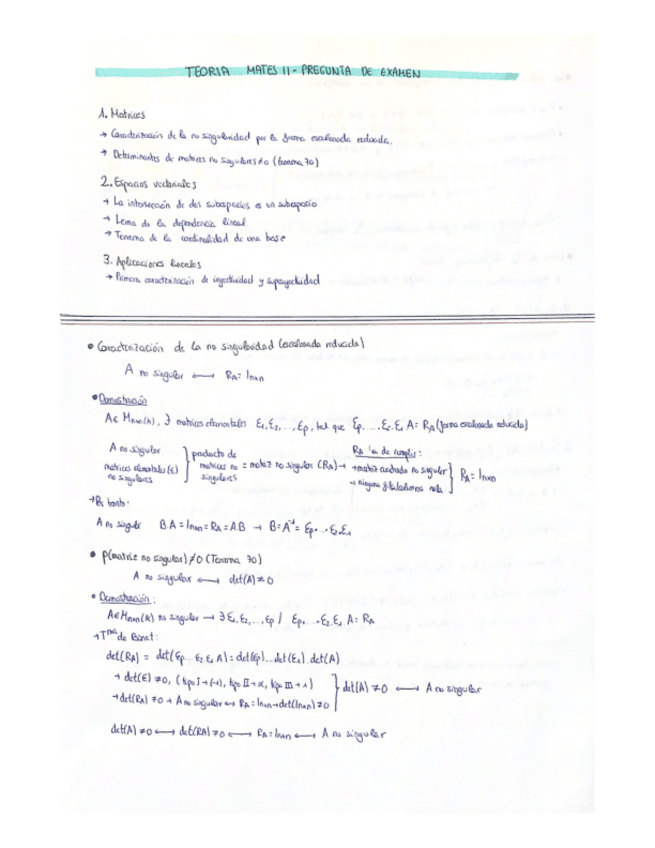 TEORIA MATES II - PREGUNTA DE EXAMEN
1. Matrices
→ Caracterización de la no singularidad por la forma escalonada reducida.
→ Determinantes de matrices no singulares ≠ 0 (teorema 70)
2. Espacios vectoriales
→ La intersección de dos subespacios es un subespacio
→ Lema de la dependencia lineal
→ Teorema de la cardinalidad de una base
3. Aplicaciones lineales
→ Primera caracterización de inyectividad y suprayectividad
• Caracterización de la no singularidad (escalonada reducida)
A no singular ⟷ R_A = I_nxn
• Demostración
A ∈ M_nxn(K), ∃ matrices elementales E_1, E_2, ..., E_p, tal que E_p. ... .E_2. E_1 A = R_A (forma escalonada reducida)
A no singular
matrices elementales (E) no singulares
} producto de matrices no singulares = matriz no singular (R_A) →
R_A ha de cumplir:
→ matriz cuadrada no singular
→ ninguna fila nula
} R_A = I_nxn
→ Por tanto:
A no singular BA = I_nxn = R_A = AB → B = A^-1 = E_p. ..E_2 E_1
• (matriz no singular) ≠ 0 (Teorema 70)
A no singular ⟷ det(A) ≠ 0
• Demostración:
A ∈ M_nxn(K) no singular → ∃ E_1, E_2, ..., E_p / E_p. ... E_2 E_1 A = R_A
→ T^ma de Binet:
det(R_A) = det(E_p ... E_2 E_1 A) = det(E_p) ... det(E_1) . det(A)
→ det(E) ≠ 0, (tipo I → (-1), tipo II → α, tipo III → 1)
→ det(R_A) ≠ 0 → A no singular ⟷ R_A = I_nxn → det(I_nxn) ≠ 0
} det(A) ≠ 0 ⟷ A no singular
det(A) ≠ 0 ⟷ det(RA) ≠ 0 ⟷ R_A = I_nxn ⟷ A no singular